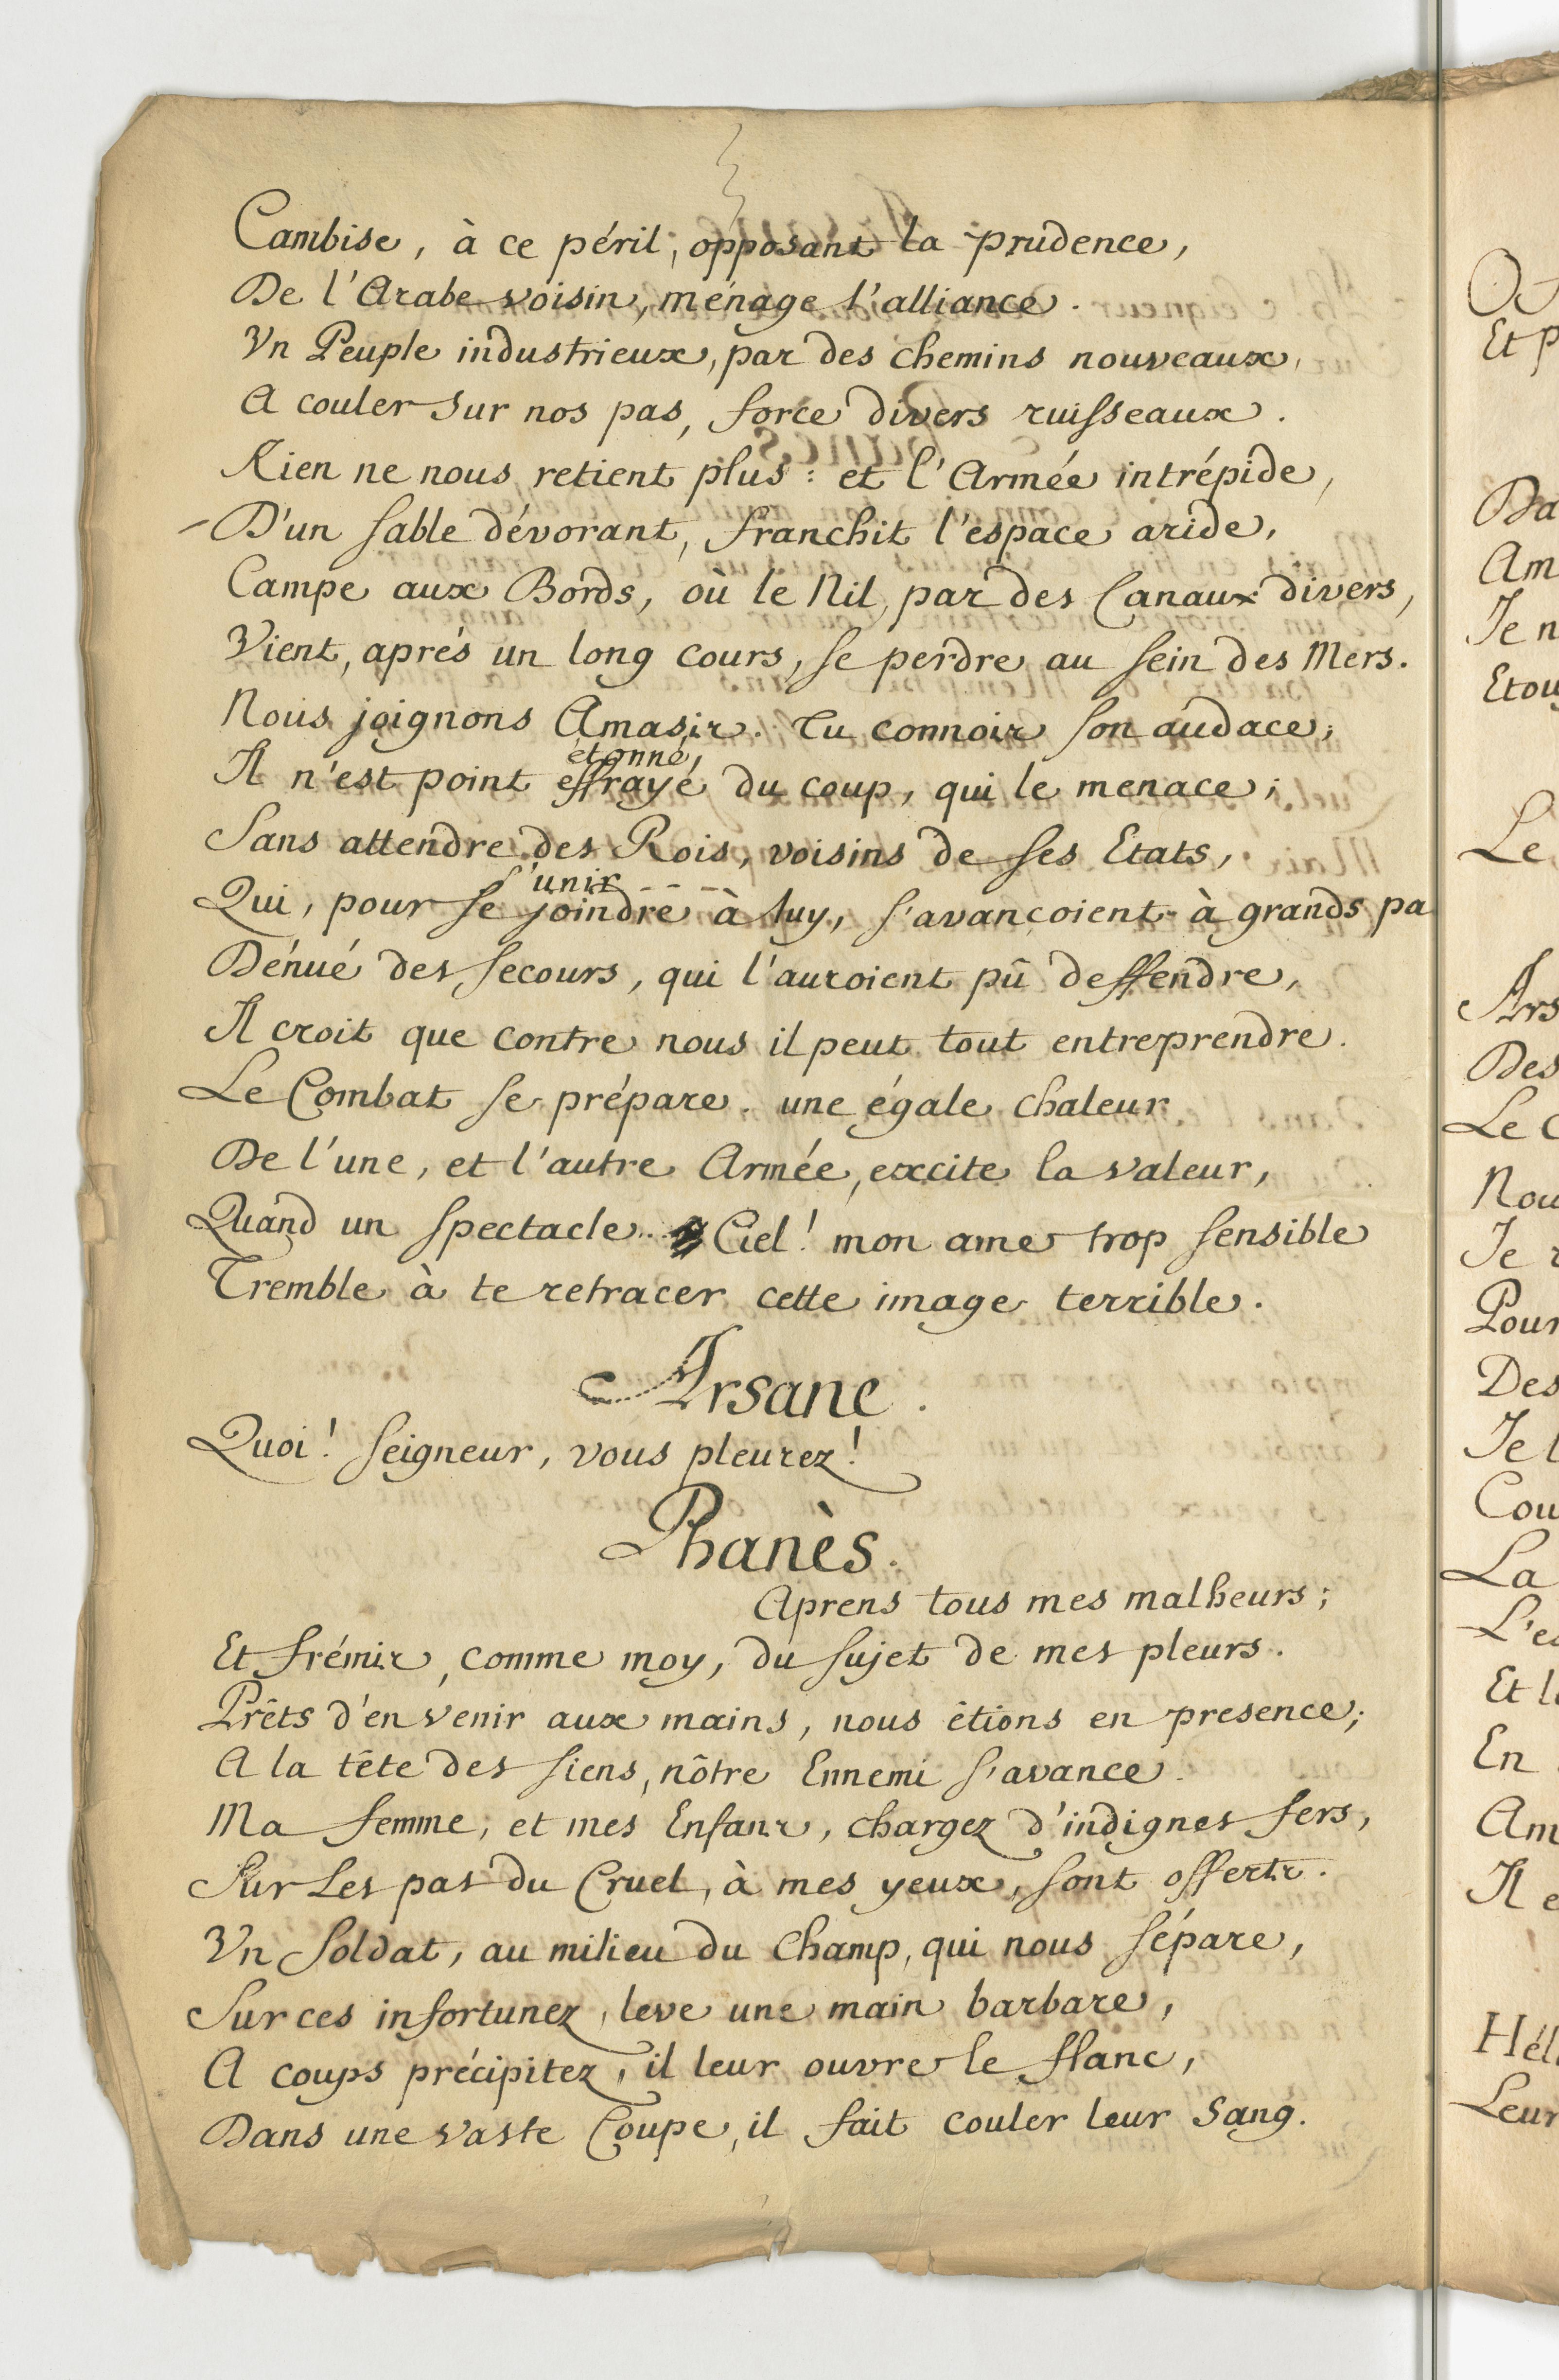 Cambise, à ce péril, opposant la prudence,
De l'Arabe voisin, ménage l'alliance.
Vn Peuple industrieux, par des chemins nouveaux,
A couler sur nos pas, force divers ruisseaux.
Rien ne nous retient plus : et l'Armée intrépide,
D'un sable dévorant, franchit l'espace aride,
Campe aux Bords, où le Nil, par des Canaux divers,
Vient, aprés un long cours, se perdre au sein des Mers.
Nous joignons Amasis. Tu connois son audace;
étonné,
Il n'est point effrayé du coup, qui le menace;
Sans attendre des Rois, voisins de ses Etats,
s'unir
Qui, pour se joindre à luy, s'avançoient à grands pa
Dénué des secours, qui l'auroient pû deffendre,
Il croit que contre nous il peut tout entreprendre.
Le Combat se prépare. une égale chaleur
De l'une, et l'autre Armée, excite la valeur,
Quand un spectacle... Ciel! mon ame trop sensible
Tremble à te retracer cette image terrible.
Arsane.
Quoi! seigneur, vous pleurez!
Phanès.
Aprens tous mes malheurs;
Et frémis, comme moy, du sujet de mes pleurs.
Prêts d'en venir aux mains, nous étions en presence;
A la tête des siens, nôtre Ennemi s'avance.
Ma femme, et mes Enfans, chargez d'indignes fers,
Sur Les pas du Cruel, à mes yeux, sont offerts.
Vn Soldat, au milieu du Champ, qui nous sépare,
Sur ces infortunez, leve une main barbare,
A coups précipitez, il leur ouvre le flanc,
Dans une vaste Coupe, il fait couler leur Sang.
Et p
Da
Am
Je n
Etou
Le
Ars
Des
Le C
Nou
Je r
Pour
Des
Je l
Cou
La
L'es
Et l
En
Am
Il e
Hél
Leur